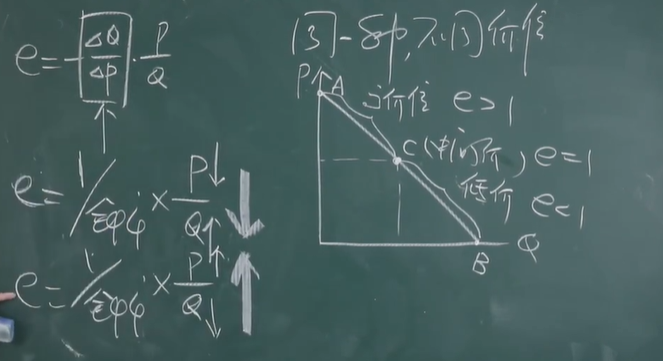 e = - ΔQ/ΔP · P/Q
e = 1/斜率 × P↓/Q↑ ↓
e = 1/斜率 × P↑/Q↓ ↑
同一条, 不同价值
P A 高价值 e>1
C(中间价) e=1
低价 e<1
B Q